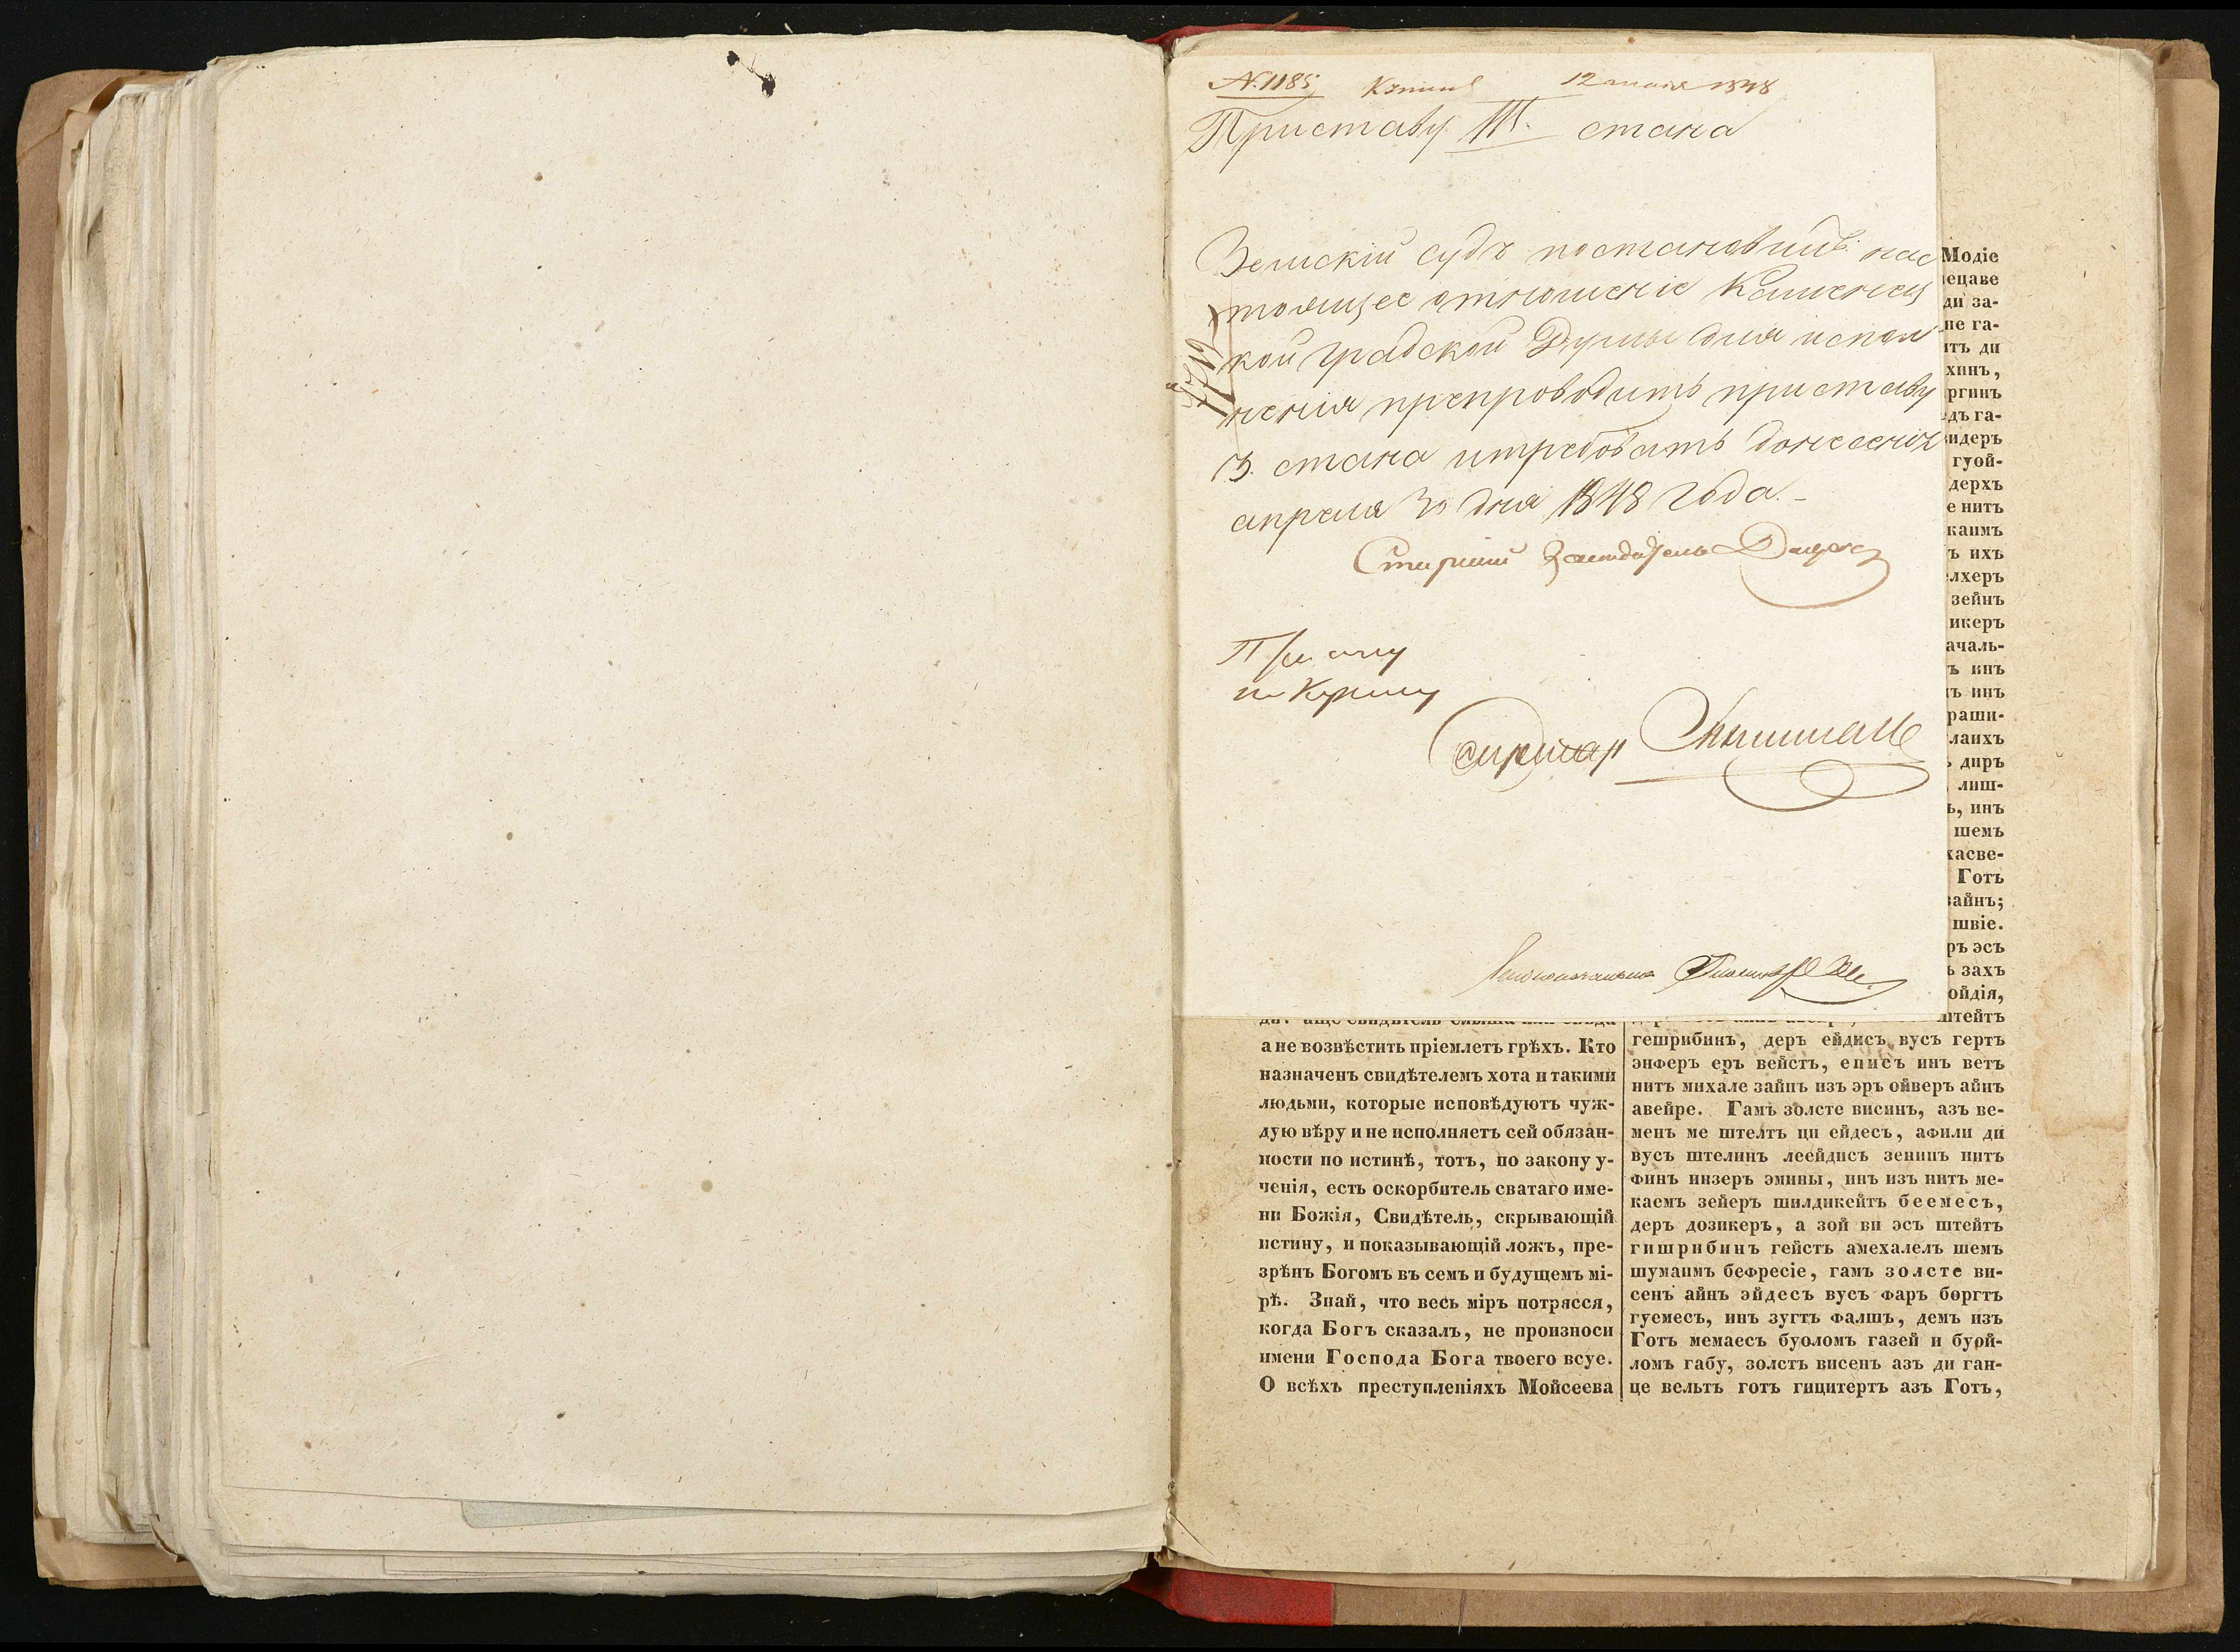 N. 1185 12 мая 1848
Приставу III. стана
Земскій судъ постановилъ: нас
тоящее отношеніе Каменец
кой градской Думы для испол
ненія препроводить приставу
3. стана и требовать донесенія
апреля 30 дня 1848 года. –
Старший Заседатель
Секретарь
Модіе
ецаве
ди за-
не га-
итъ ди
хинъ,
ргинъ
дъ га-
видеръ
гуой-
дерхъ
е нитъ
каимъ
ъ ихъ
елхеръ
зейнъ
икеръ
ачаль-
ъ инъ
ъ инъ
раши-
лаихъ
диръ
лиш-
ь, инъ
шемъ
хасве-
Готъ
вайнъ;
швіе.
ръ эсъ
ь захъ
ойдія,
штейтъ
а не возвѣстить пріемлетъ грѣхъ. Кто
назначенъ свидѣтелемъ хота и такими
людьми, которые исповѣдуютъ чуж-
дую вѣру и не исполняетъ сей обязан-
ности по истинѣ, тотъ, по закону у-
ченія, есть оскорбитель сватаго име-
ни Божія, Свидѣтель, скрывающій
истину, и показывающій ложъ, пре-
зрѣнъ Богомъ въ семъ и будущемъ мі-
рѣ. Знай, что весь міръ потрясся,
когда Богъ сказалъ, не произноси
имени Господа Бога твоего всуе.
О всѣхъ преступленіяхъ Мойсеева
гешрибинъ, деръ ейдисъ вусъ гертъ
энферъ еръ вейстъ, еписъ инъ ветъ
нитъ михале зайнъ изъ эръ ойверъ айнъ
авейре. Гамъ золсте висинъ, азъ ве-
менъ ме штелтъ ци ейдесъ, афили ди
вусъ штелинъ леейдисъ зенинъ нитъ
финъ инзеръ эмины, инъ изъ нитъ ме-
каемъ зейеръ шилдикейтъ беемесъ,
деръ дозикеръ, а зой ви эсъ штейтъ
гишрибинъ гейстъ амехалелъ шемъ
шумаимъ бефресіе, гамъ золсте ви-
сенъ айнъ эйдесъ вусъ фаръ боргтъ
гуемесъ, инъ зугтъ фалшъ, демъ изъ
Готъ мемаесъ буоломъ газей и буой-
ломъ габу, золстъ висенъ азъ ди ган-
це вельтъ готъ гицитертъ азъ Готъ,